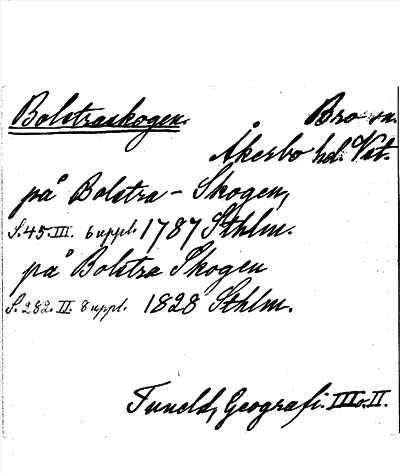 Bolstraskogen. Bro sn.
Åkerbo hd. Vst.
på Bolstra - Skogen,
S. 45. III. 6 uppl. 1787 Sthlm.
på Bolstra Skogen
S. 282. II. 8 uppl. 1828 Sthlm.
Tuneld, Geografi. III o. II.